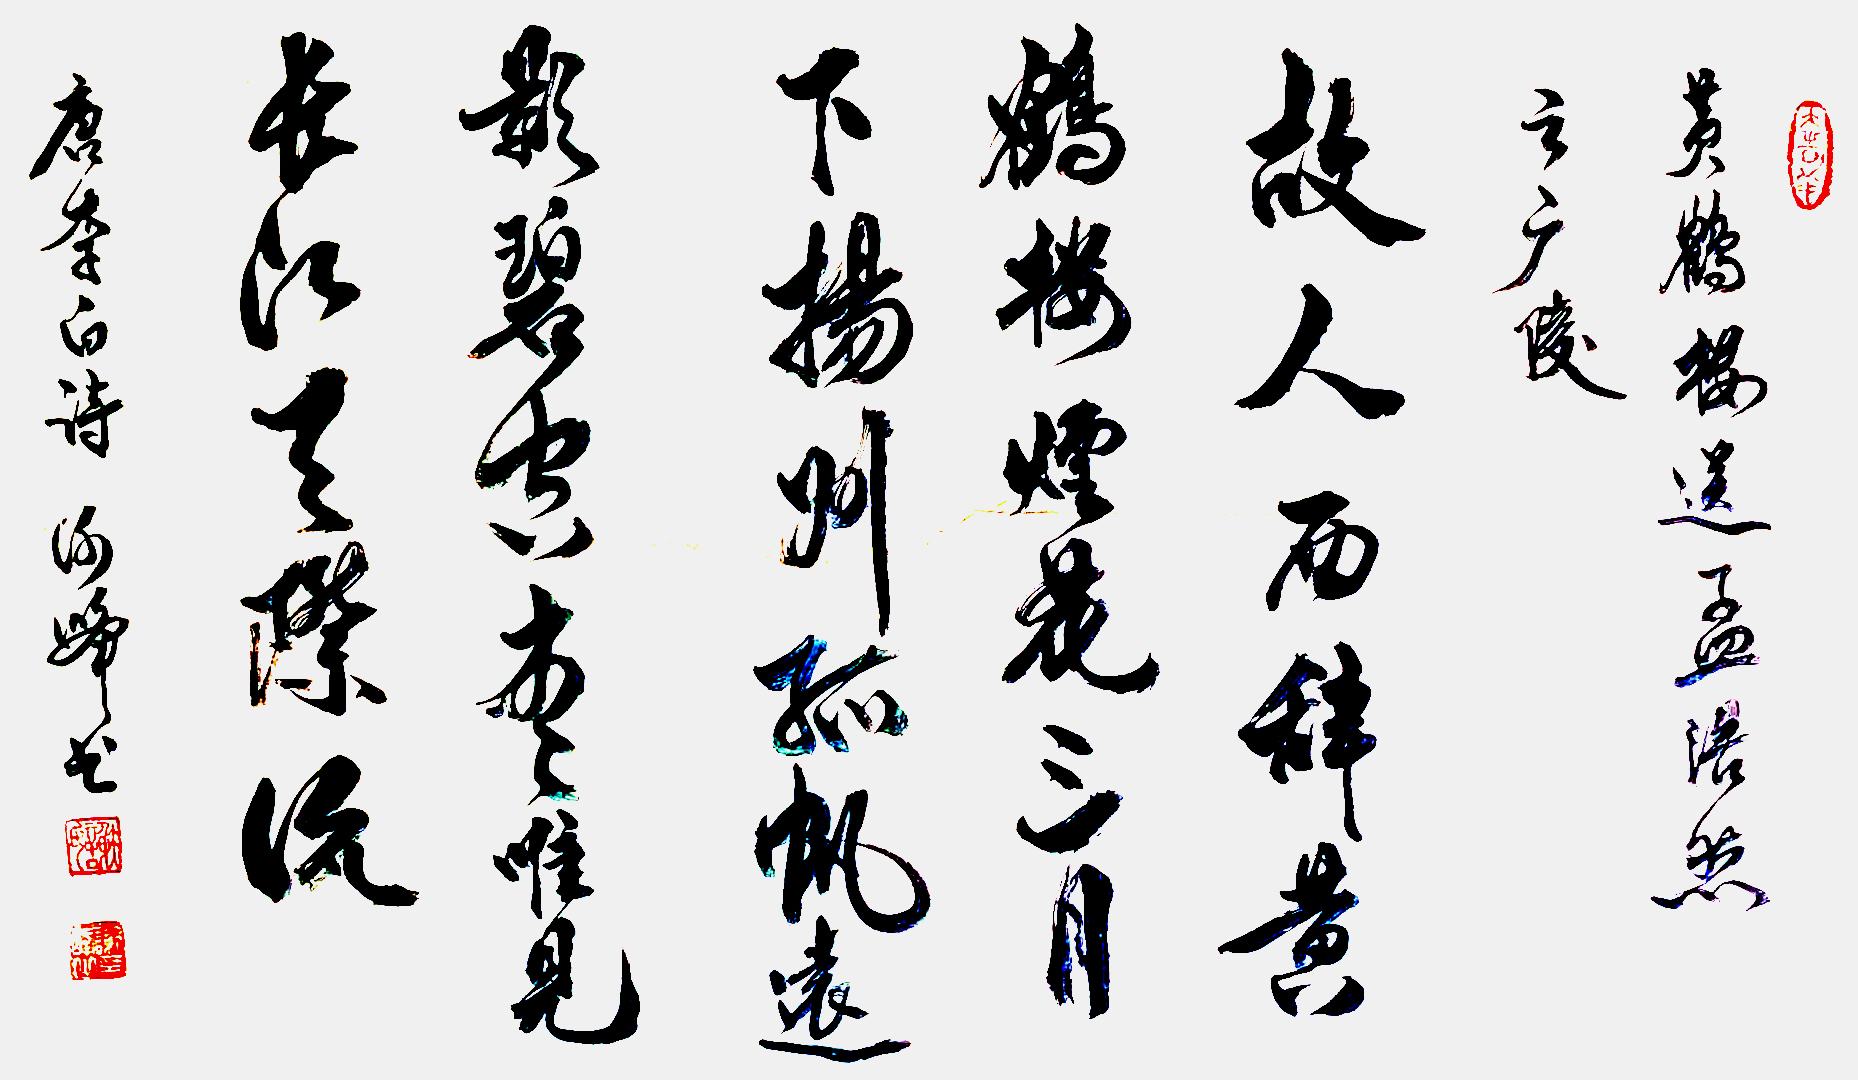 黄鶴楼送孟浩然
之广陵
故人西辞黄
鶴楼煙花三月
下揚州孤帆遠
影碧空尽唯見
长江天際流
唐李白詩 书